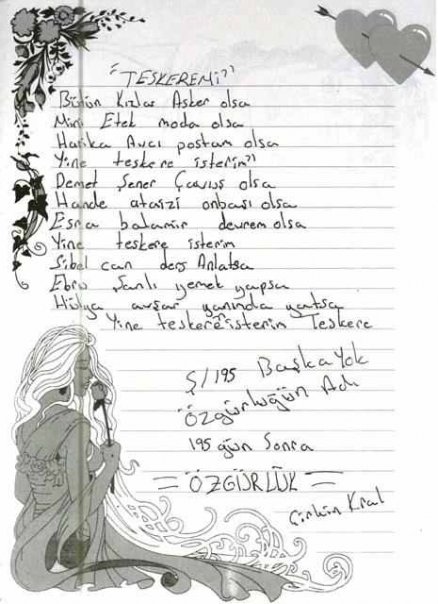 "TESKEREMİ"
Bütün Kızlar Asker olsa
Mini Etek moda olsa
Harika Avcı postam olsa
Yine teskere isterim"
Demet Şener Çavuş olsa
Hande ataizi onbaşı olsa
Esra balamir devrem olsa
Yine teskere isterim
Sibel can ders Anlatsa
Ebru Şanlı yemek yapsa
Hülya avşar yanımda yatsa
Yine teskere isterim Teskere
Ş/195 Başka Yok
Özgürlüğün Adı
195 gün Sonra
= ÖZGÜRLÜK =
Çirkin Kral